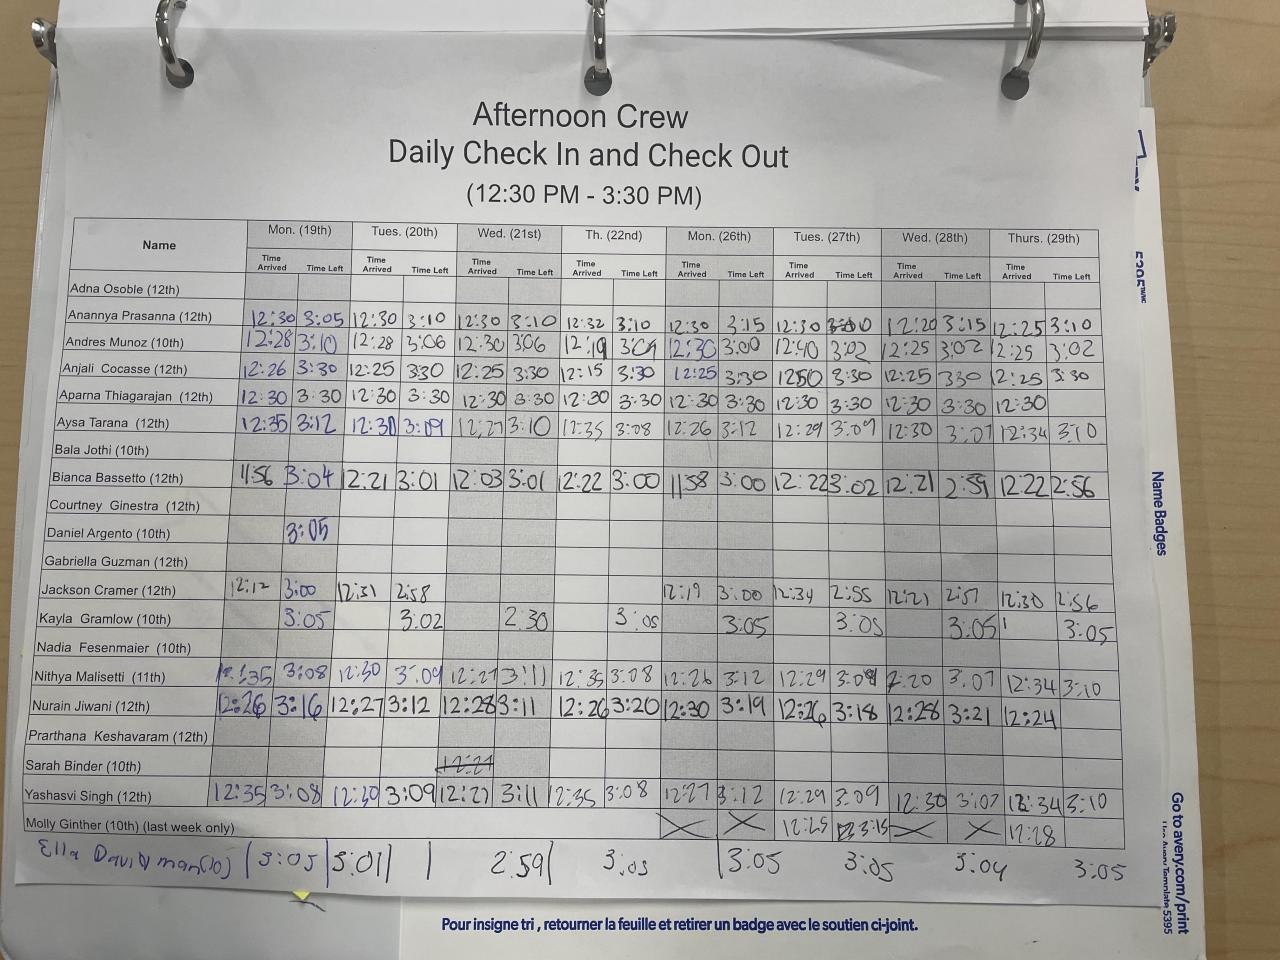 Afternoon Crew
Daily Check In and Check Out
(12:30 PM - 3:30 PM)
Name Mon. (19th) Tues. (20th) Wed. (21st) Th. (22nd) Mon. (26th) Tues. (27th) Wed. (28th) Thurs. (29th)
Time Arrived Time Left Time Arrived Time Left Time Arrived Time Left Time Arrived Time Left Time Arrived Time Left Time Arrived Time Left Time Arrived Time Left Time Arrived Time Left
Adna Osoble (12th)
Anannya Prasanna (12th) 12:30 3:05 12:30 3:10 12:30 3:10 12:32 3:10 12:30 3:15 12:30 12:20 3:15 12:25 3:10
Andres Munoz (10th) 12:28 3:10 12:28 3:06 12:30 3:06 12:19 3:09 12:30 3:00 12:40 3:02 12:25 3:02 12:25 3:02
Anjali Cocasse (12th) 12:26 3:30 12:25 3:30 12:25 3:30 12:15 3:30 12:25 3:30 1250 3:30 12:25 330 12:25 3:30
Aparna Thiagarajan (12th) 12:30 3:30 12:30 3:30 12:30 3:30 12:30 3:30 12:30 3:30 12:30 3:30 12:30 3:30 12:30
Aysa Tarana (12th) 12:35 3:12 12:30 3:09 12:27 3:10 12:35 3:08 12:26 3:12 12:29 3:09 12:30 3:07 12:34 3:10
Bala Jothi (10th)
Bianca Bassetto (12th) 11:56 3:04 12:21 3:01 12:03 3:01 12:22 3:00 1158 3:00 12:22 3:02 12:21 2:59 12:22 2:56
Courtney Ginestra (12th)
Daniel Argento (10th) 3:05
Gabriella Guzman (12th)
Jackson Cramer (12th) 12:12 3:00 12:31 2:58 12:19 3:00 12:34 2:55 12:21 2:57 12:30 2:56
Kayla Gramlow (10th) 3:05 3:02 2:30 3:05 3:05 3:05 3:05 3:05
Nadia Fesenmaier (10th)
Nithya Malisetti (11th) 12:35 3:08 12:30 3:09 12:27 3:11 12:35 3:08 12:26 3:12 12:29 3:09 3:07 12:34 3:10
Nurain Jiwani (12th) 12:26 3:16 12:27 3:12 12:28 3:11 12:26 3:20 12:30 3:19 12:26 3:18 12:28 3:21 12:24
Prarthana Keshavaram (12th)
Sarah Binder (10th) 12:27
Yashasvi Singh (12th) 12:35 3:08 12:30 3:09 12:27 3:11 12:35 3:08 12:27 3:12 12:29 3:09 12:30 3:07 12:34 3:10
Molly Ginther (10th) (last week only) 12:25 3:15 12:28
Ella Davidyman(10) 3:05 3:01 2:59 3:05 3:05 3:05 3:04 3:05
Name Badges
Go to avery.com/print
Use Avery Template 5395
Pour insigne tri, retourner la feuille et retirer un badge avec le soutien ci-joint.